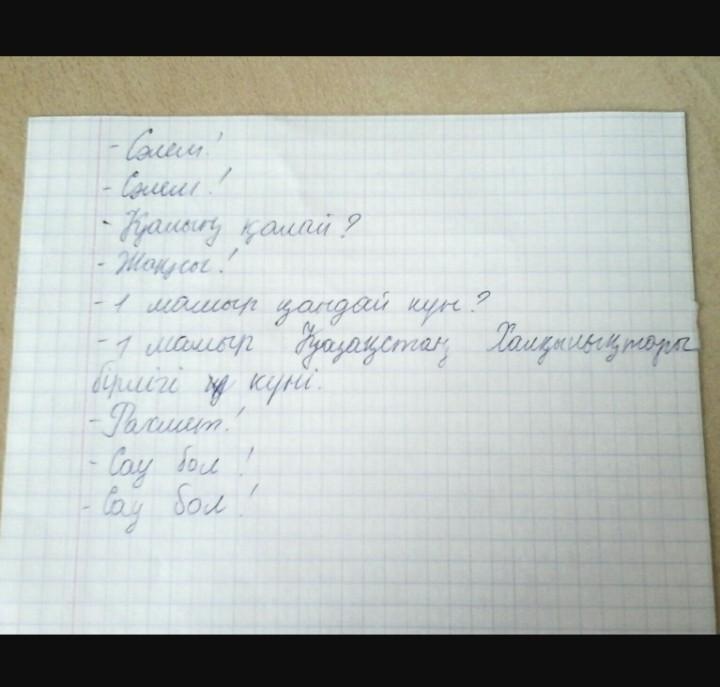 - Сәлем!
- Сәлем!
- Қалың қалай?
- Жақсы!
- 1 мамыр қандай күн?
- 1 мамыр Қазақстаң Халқылықтары
бірлігі күні.
- Рахмет!
- Сау бол!
- Сау бол!